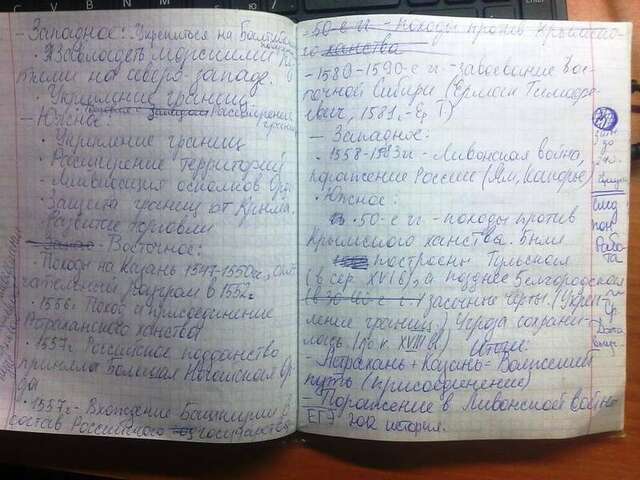 - Западное: Укрепиться на Балтике
• Завладеть морскими пу-
тями на северо-западе.
• Укрепление границ
- Южное: Расширение границ
• Укрепление границ
• Расширение территорий
• Ликвидация осколков Орды
• Защита границ от Крыма.
Развитие торговли
- Восточное:
Походы на Казань 1547-1550гг,
чательный разгром в 1552г.
• 1556г Поход и присоединение
Астраханского ханства
• 1557г Российское подданство
приняла Большая Ногайская Ор-
да
• 1557г - Вхождение Башкирии в
состав Российского государства
- 50-е гг - походы против Крымско-
го ханства
- 1580-1590-е гг - завоевание Вос-
точной Сибири (Ермак Тимофе-
евич, 1581г
- Западное:
• 1558-1583гг - Ливонская война,
поражение России (Ям, Копорье)
• Южное:
• 50-е гг - походы против
Крымского ханства. Были
построены Тульская
(в сер XVI в), а позднее Белгородская
засечные черты. (Укреп-
ление границ) Угроза сохраня-
лась (до к. XVIII в) Итоги:
- Астрахань + Казань = Волжский
путь (присоединение)
- Поражение в Ливонской войне
ЕГЭ 2012 история.